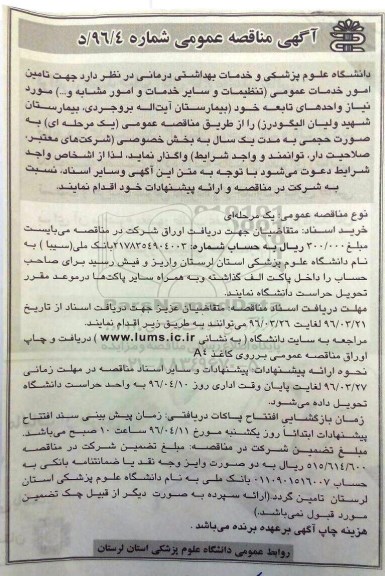 آگهی مناقصه عمومی شماره ۹۶/۴/د
دانشگاه علوم پزشکی و خدمات بهداشتی درمانی در نظر دارد جهت تامین
امور خدمات عمومی (تنظیفات و سایر خدمات و امور مشابه و...) مورد
نیاز واحدهای تابعه خود (بیمارستان آیت‌اله بروجردی، بیمارستان
شهید ولیان الیگودرز) را از طریق مناقصه عمومی (یک مرحله ای) به
صورت حجمی به مدت یک سال به بخش خصوصی (شرکت‌های معتبر،
صلاحیت دار، توانمند و واجد شرایط) واگذار نماید. لذا از اشخاص واجد
شرایط دعوت می‌شود با توجه به متن این آگهی وسایر اسناد، نسبت
به شرکت در مناقصه و ارائه پیشنهادات خود اقدام نمایند.
نوع مناقصه عمومی: یک مرحله‌ای
خرید اسناد: متقاضیان جهت دریافت اوراق شرکت در مناقصه می‌بایست
مبلغ ۳۰۰/۰۰۰ ریال به حساب شماره: ۲۱۷۸۳۵۴۹۰۴۰۰۳بانک ملی(سیبا) به
نام دانشگاه علوم پزشکی استان لرستان واریز و فیش رسید برای صاحب
حساب را داخل پاکت الف گذاشته وبه همراه سایر پاکت‌ها درموعد مقرر
تحویل حراست دانشگاه نمایند.
مهلت دریافت اسناد مناقصه: متقاضیان عزیز جهت دریافت اسناد از تاریخ
۹۶/۰۳/۲۱ لغایت ۹۶/۰۳/۲۶ می‌توانند به طریق زیر اقدام نمایند.
مراجعه به سایت دانشگاه ( به نشانی www.lums.ic.ir ) دریافت و چاپ
اوراق مناقصه عمومی برروی کاغذ A4
نحوه ارائه پیشنهادات: پیشنهادات و سایر اسناد مناقصه در مهلت زمانی
۹۶/۰۳/۲۷ لغایت پایان وقت اداری روز ۹۶/۰۴/۱۰ به واحد حراست دانشگاه
تحویل داده می‌شود.
زمان بازگشایی افتتاح پاکات دریافتی: زمان پیش بینی سند افتتاح
پیشنهادات ابتدائاً روز یکشنبه مورخ ۹۶/۰۴/۱۱ ساعت ۱۰ صبح می‌باشد.
مبلغ تضمین شرکت در مناقصه: مبلغ تضمین شرکت در مناقصه
۵۱۵/۶۱۴/۶۰۰ ریال به دو صورت واریز وجه نقد یا ضمانتنامه بانکی به
حساب ۰۱۱۰۹۰۱۵۱۶۰۰۷ بانک ملی به نام دانشگاه علوم پزشکی استان
لرستان تامین گردد.(ارائه سپرده به صورت دیگر از قبیل چک تضمین
مورد قبول نمی‌باشد.)
هزینه چاپ آگهی برعهده برنده می‌باشد.
روابط عمومی دانشگاه علوم پزشکی استان لرستان